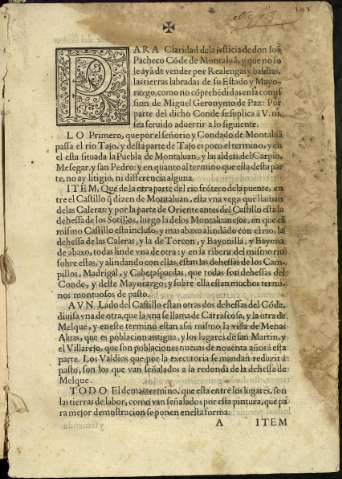 PARA Claridad dela justicia de don Ioã
Pacheco Cõde de Montaluã, y que no se
le aya de vender por Realengas y baldias
las tierras labradas de su Estado y Mayo-
razgo, como no cõprehẽdidas en la comis-
sion de Miguel Geronymo de Paz: Por
parte del dicho Conde se suplica à V. m.
sea seruido aduertir a lo siguiente.
LO Primero, que por el señorio y Condado de Montaluã
passa el rio Tajo, y desta parte de Tajo es poco el termino, y en
el esta situada la Puebla de Montaluan, y las aldeas del Carpio,
Mesegar, y san Pedro: y en quanto al termino que esta desta par-
te, no ay litigio, ni differencia alguna.
ITEM, Que de la otra parte del rio frõtero de la puente, en
tre el Castillo q̃ dizen de Montaluan, esta vna vega que llaman
de las Caleras: y por la parte de Oriente antes del Castillo esta la
dehessa de los Sotillos, luego la de los Montalua­nejos, en que el
mismo Castillo esta incluso, y mas abaxo alindado con el rio, la
dehessa de las Caleras, y la de Torcon, y Bayonilla, y Bayona
de abaxo, todas linde vna de otra: y en la ribera del mismo rio
sobre estas, y alindando con ellas, estan las dehessas de los Cam-
pillos, Madrigal, y Cabeçaspuedas, que todas son dehessas del
Conde, y deste Mayorazgo, y sobre ella estan muchos termi-
nos montuosos de pasto.
AVN. Lado del Castillo estan otras dos dehessas del Cõde,
diuisa vna de otra, que la vna se llama de Carrascosa, y la otra de
Melque, y en este termino estan assi mismo la villa de Menas
Albas, que es poblacion antigua, y los lugares de san Martin, y
el Villarejo, que son poblaciones nueuas de nouenta años a esta
parte. Los Valdios que por la executoria se mandan reduzir a
pasto, son los que van señalados a la redonda de la dehessa de
Melque.
TODO El demas termino, que esta entre los lugares, son
las tierras de labor, como van señalados por esta pintura, que pa
ra mejor demostracion se ponen en esta forma.
A ITEM